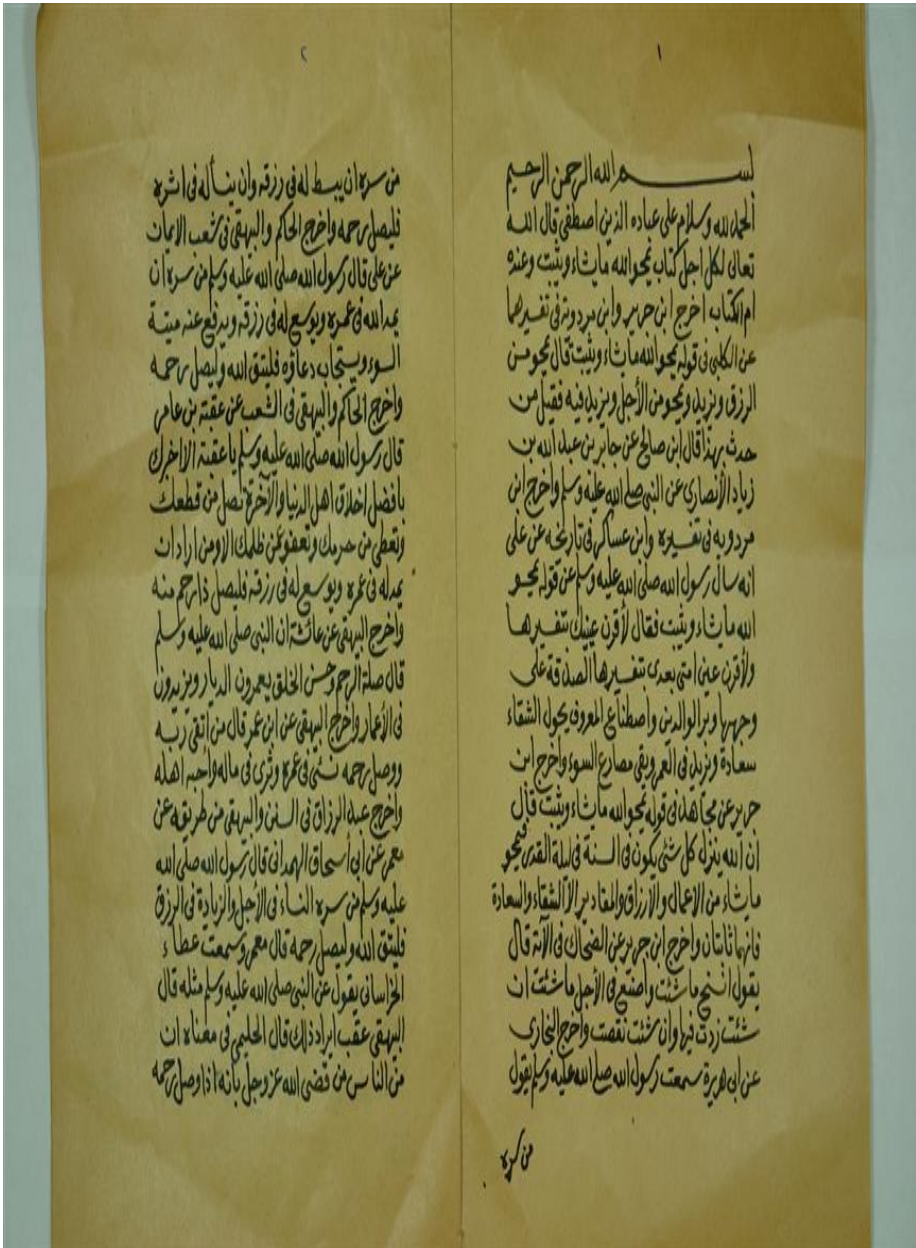 ١
بسم الله الرحمن الرحيم
الحمد لله وسلام على عباده الذين اصطفى قال الله
تعالى لكل اجل كتاب يمحو الله ما يشاء ويثبت وعنده
ام الكتاب اخرج ابن جرير وابن مردويه فى تفسيرهما
عن الكلبى فى قوله يمحو الله ما يشاء ويثبت قال يمحو من
الرزق ويزيد ويمحو من الأجل ويزيد فيه فقيل من
حدث بهذا قال ابن صالح عن جابر بن عبد الله بن
زياد الأنصارى عن النبى صلى الله عليه وسلم واخرج ابن
مردويه فى تفسيره وابن عساكر فى تاريخه عن على
انه سأل رسول الله صلى الله عليه وسلم عن قوله يمحو
الله ما يشاء ويثبت فقال لأقرن عينيك بتفسيرها
ولأقرن عين امتى بعدى بتفسيرها الصدقة على
وجهها وبر الوالدين واصطناع المعروف يحول الشقاء
سعادة ويزيد فى العمر ويقى مصارع السوء واخرج ابن
جرير عن مجاهد فى قوله يمحو الله ما يشاء ويثبت قال
ان الله ينزل كل شئ يكون فى السنة فى ليلة القدر فيمحو
ما يشاء من الاعمال والأرزاق والمقادير الا الشقاء والسعادة
فانهما ثابتان واخرج ابن جرير عن الضحاك فى الآية قال
يقول انسخ ما شئت واصنع فى الأجل ما شئت ان
شئت زدت فيها وان شئت نقصت واخرج البخارى
عن ابى هريرة سمعت رسول الله صلى الله عليه وسلم يقول
من سره
٢
من سره ان يبسط له فى رزقه وان ينسأ له فى اثره
فليصل رحمه واخرج الحاكم والبيهقى فى شعب الايمان
عن على قال رسول الله صلى الله عليه وسلم من سره ان
يمد الله فى عمره ويوسع له فى رزقه ويدفع عنه ميتة
السوء ويستجاب دعاؤه فليتق الله وليصل رحمه
واخرج الحاكم والبيهقى فى الشعب عن عقبة بن عامر
قال رسول الله صلى الله عليه وسلم يا عقبة الا اخبرك
بافضل اخلاق اهل الدنيا والآخرة تصل من قطعك
وتعطى من حرمك وتعفو عمن ظلمك الا ومن اراد ان
يمد له فى عمره ويوسع له فى رزقه فليصل ذا رحم منه
واخرج البيهقى عن عائشة ان النبى صلى الله عليه وسلم
قال صلة الرحم وحسن الخلق يعمرون الديار ويزيدون
فى الأعمار واخرج البيهقى عن ابن عمر قال من اتقى ربه
ووصل رحمه نسئ فى عمره وثرى فى ماله واحبه اهله
واخرج عبد الرزاق فى السنن والبيهقى من طريقه عن
معمر عن ابى اسحاق الهمدانى قال رسول الله صلى الله
عليه وسلم من سره النساء فى الأجل والزيادة فى الرزق
فليتق الله وليصل رحمه قال معمر وسمعت عطاء
الخراسانى يقول عن النبى صلى الله عليه وسلم مثله قال
البيهقى عقب ايراد ذلك قال الحليمى فى معناه ان
من الناس من قضى الله عز وجل بأنه اذا وصل رحمه